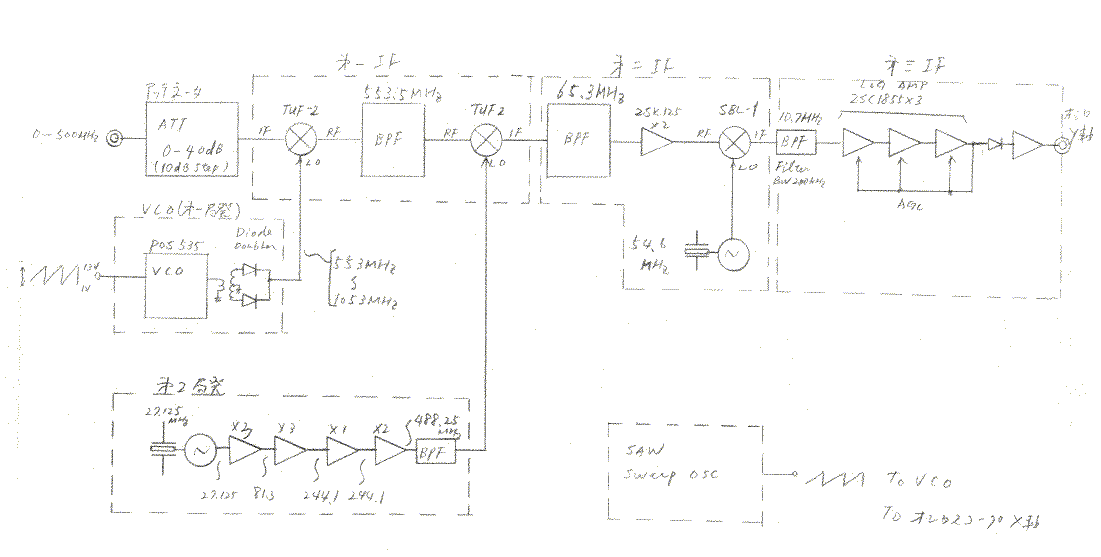 オ一 IF
オ二 IF
オ三 IF
アッテネータ
ATT
0-40dB
(10dB Step)
0~500MHz
TUF-2
IF
RF
LO
553.5MHz
BPF
RF
TUF2
IF
LO
65.3MHz
BPF
2SK125
X2
RF
SBL-1
IF
LO
54.6
MHz
10.7MHz
BPF
Filter
BW 200kHz
LOG AMP
2SC1855X3
AGC
Y軸
VCO(オ一局発)
POS 535
VCO
Diode
Doubler
13V
1V
553MHz
1053MHz
オ2局発
27.125
MHz
X3
X3
X1
X2
488.25
MHz
BPF
27.125
81.3
244.1
244.1
SAW
Sweep OSC
To VCO
TO オシロスコープ X軸